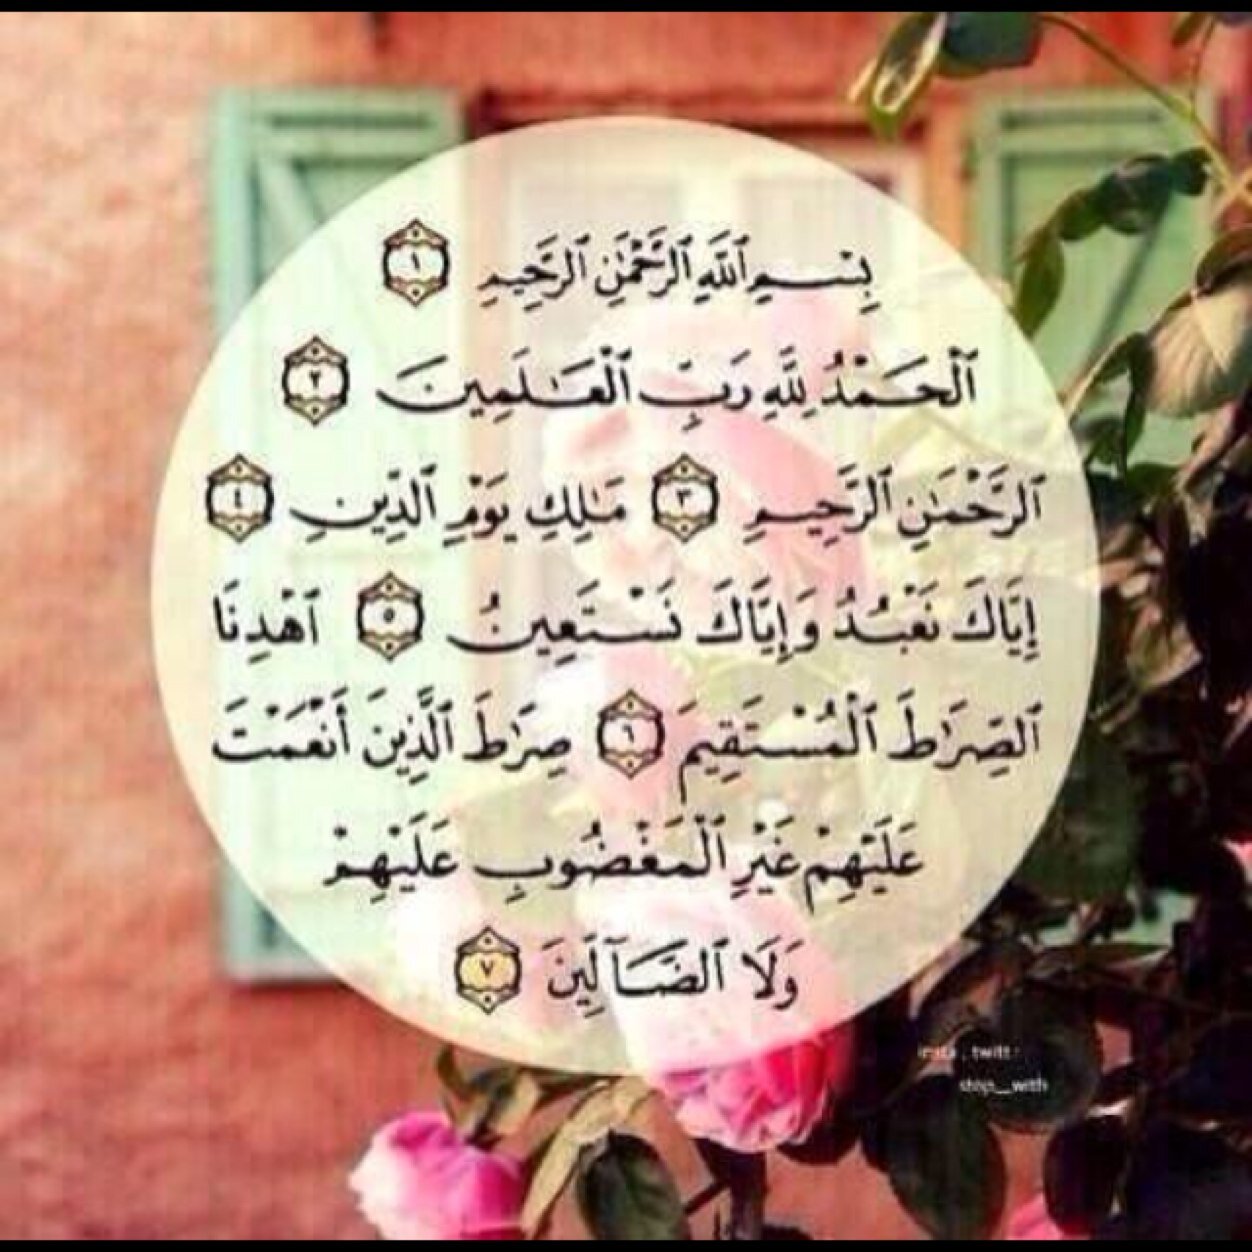 بِسْمِ ٱللَّهِ ٱلرَّحْمَٰنِ ٱلرَّحِيمِ ١
ٱلْحَمْدُ لِلَّهِ رَبِّ ٱلْعَـٰلَمِينَ ٢
ٱلرَّحْمَـٰنِ ٱلرَّحِيمِ ٣ مَـٰلِكِ يَوْمِ ٱلدِّينِ ٤
إِيَّاكَ نَعْبُدُ وَإِيَّاكَ نَسْتَعِينُ ٥ ٱهْدِنَا
ٱلصِّرَٰطَ ٱلْمُسْتَقِيمَ ٦ صِرَٰطَ ٱلَّذِينَ أَنْعَمْتَ
عَلَيْهِمْ غَيْرِ ٱلْمَغْضُوبِ عَلَيْهِمْ
وَلَا ٱلضَّآلِّينَ ٧
insta . twitt
_with